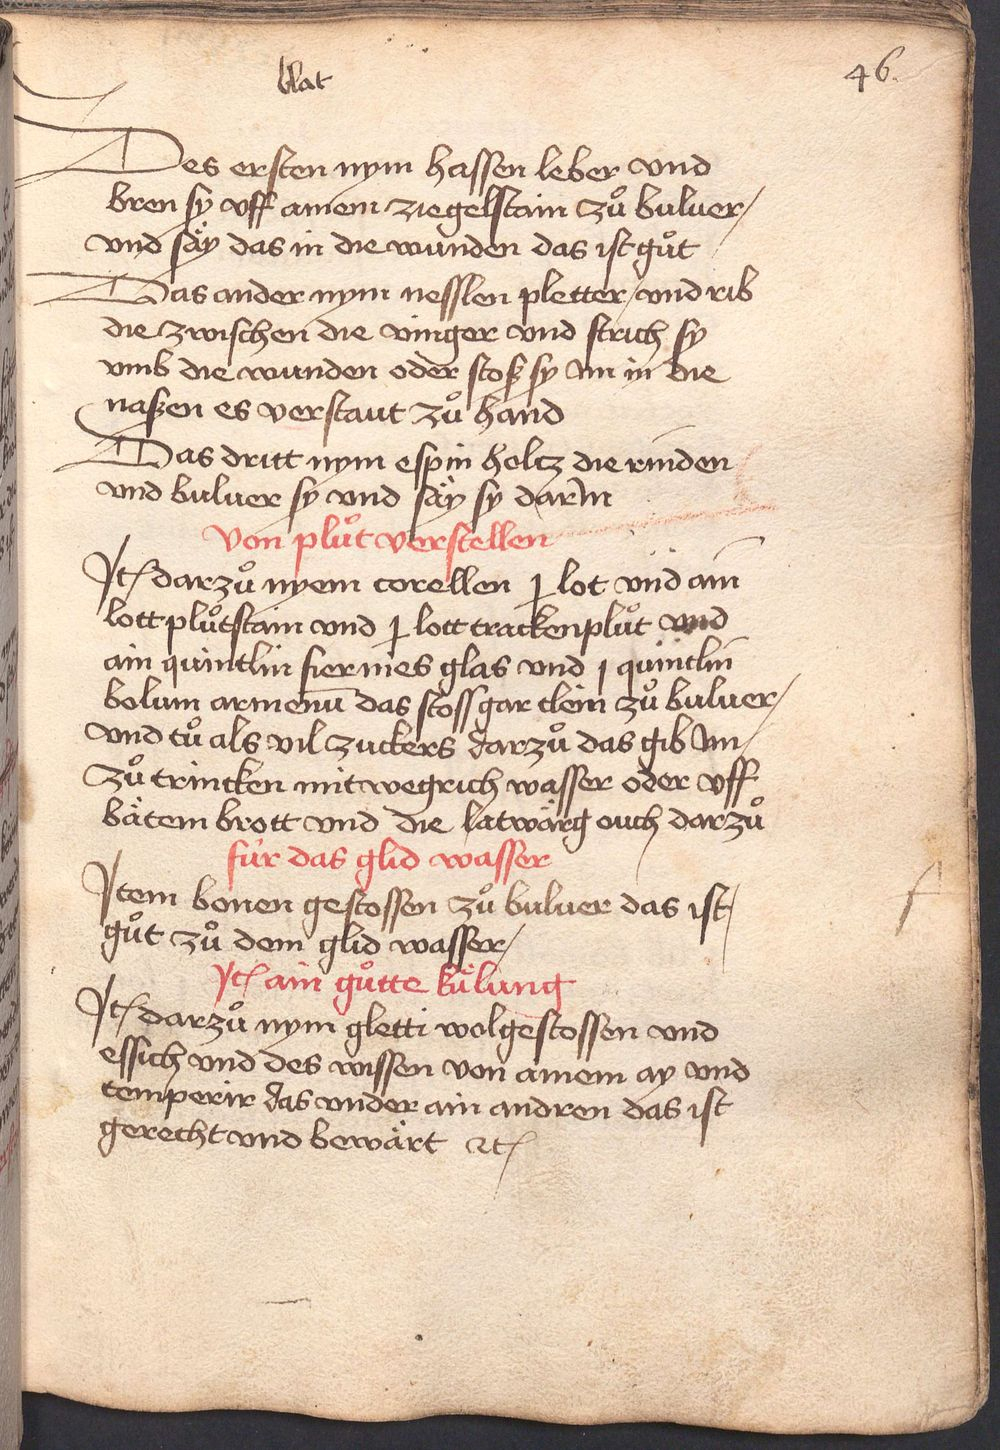 blat
46.
Des ersten nym hassen leber vnd
bren sy vff ainem ziegelstain zuͦ buluer /
vnd säy das in die wunden das ist guͦt
Das ander nym nesslen pletter / vnd rib
die zwischen die vinger vnd strich sy
vmb die wunden oder stoß sy im in die
naßen es verstaut zuͦ hand
Das dritt nym espin holtz die rinden
vnd buluer sy vnd säy sy darin
Von pluͦt verstellen
Itͣ darzuͦ nyem corellen j lot vnd ain
lott pluͦtstain vnd j lott trackenpluͦt vnd
ain quintlin fiernies glas vnd j quintlin
bolum armenū das stoss gar clein zuͦ buluer /
vnd tuͦ als vil zuckers darzuͦ das gib im /
zuͦ trincken mit wegrich wasser oder vff
bätem brott vnd die latwärg ouch darzuͦ
für das glid wasser
Item bonen gestossen zuͦ buluer das ist /
guͦt zuͦ dem glid wasser /
Itͣ ain guͦtte külung
Itͣ darzuͦ nym gletti wolgestossen vnd
essich vnd des wissen von ainem ay vnd
temperir das vnder ain andren das ist
gerecht vnd bewärt ꝛc